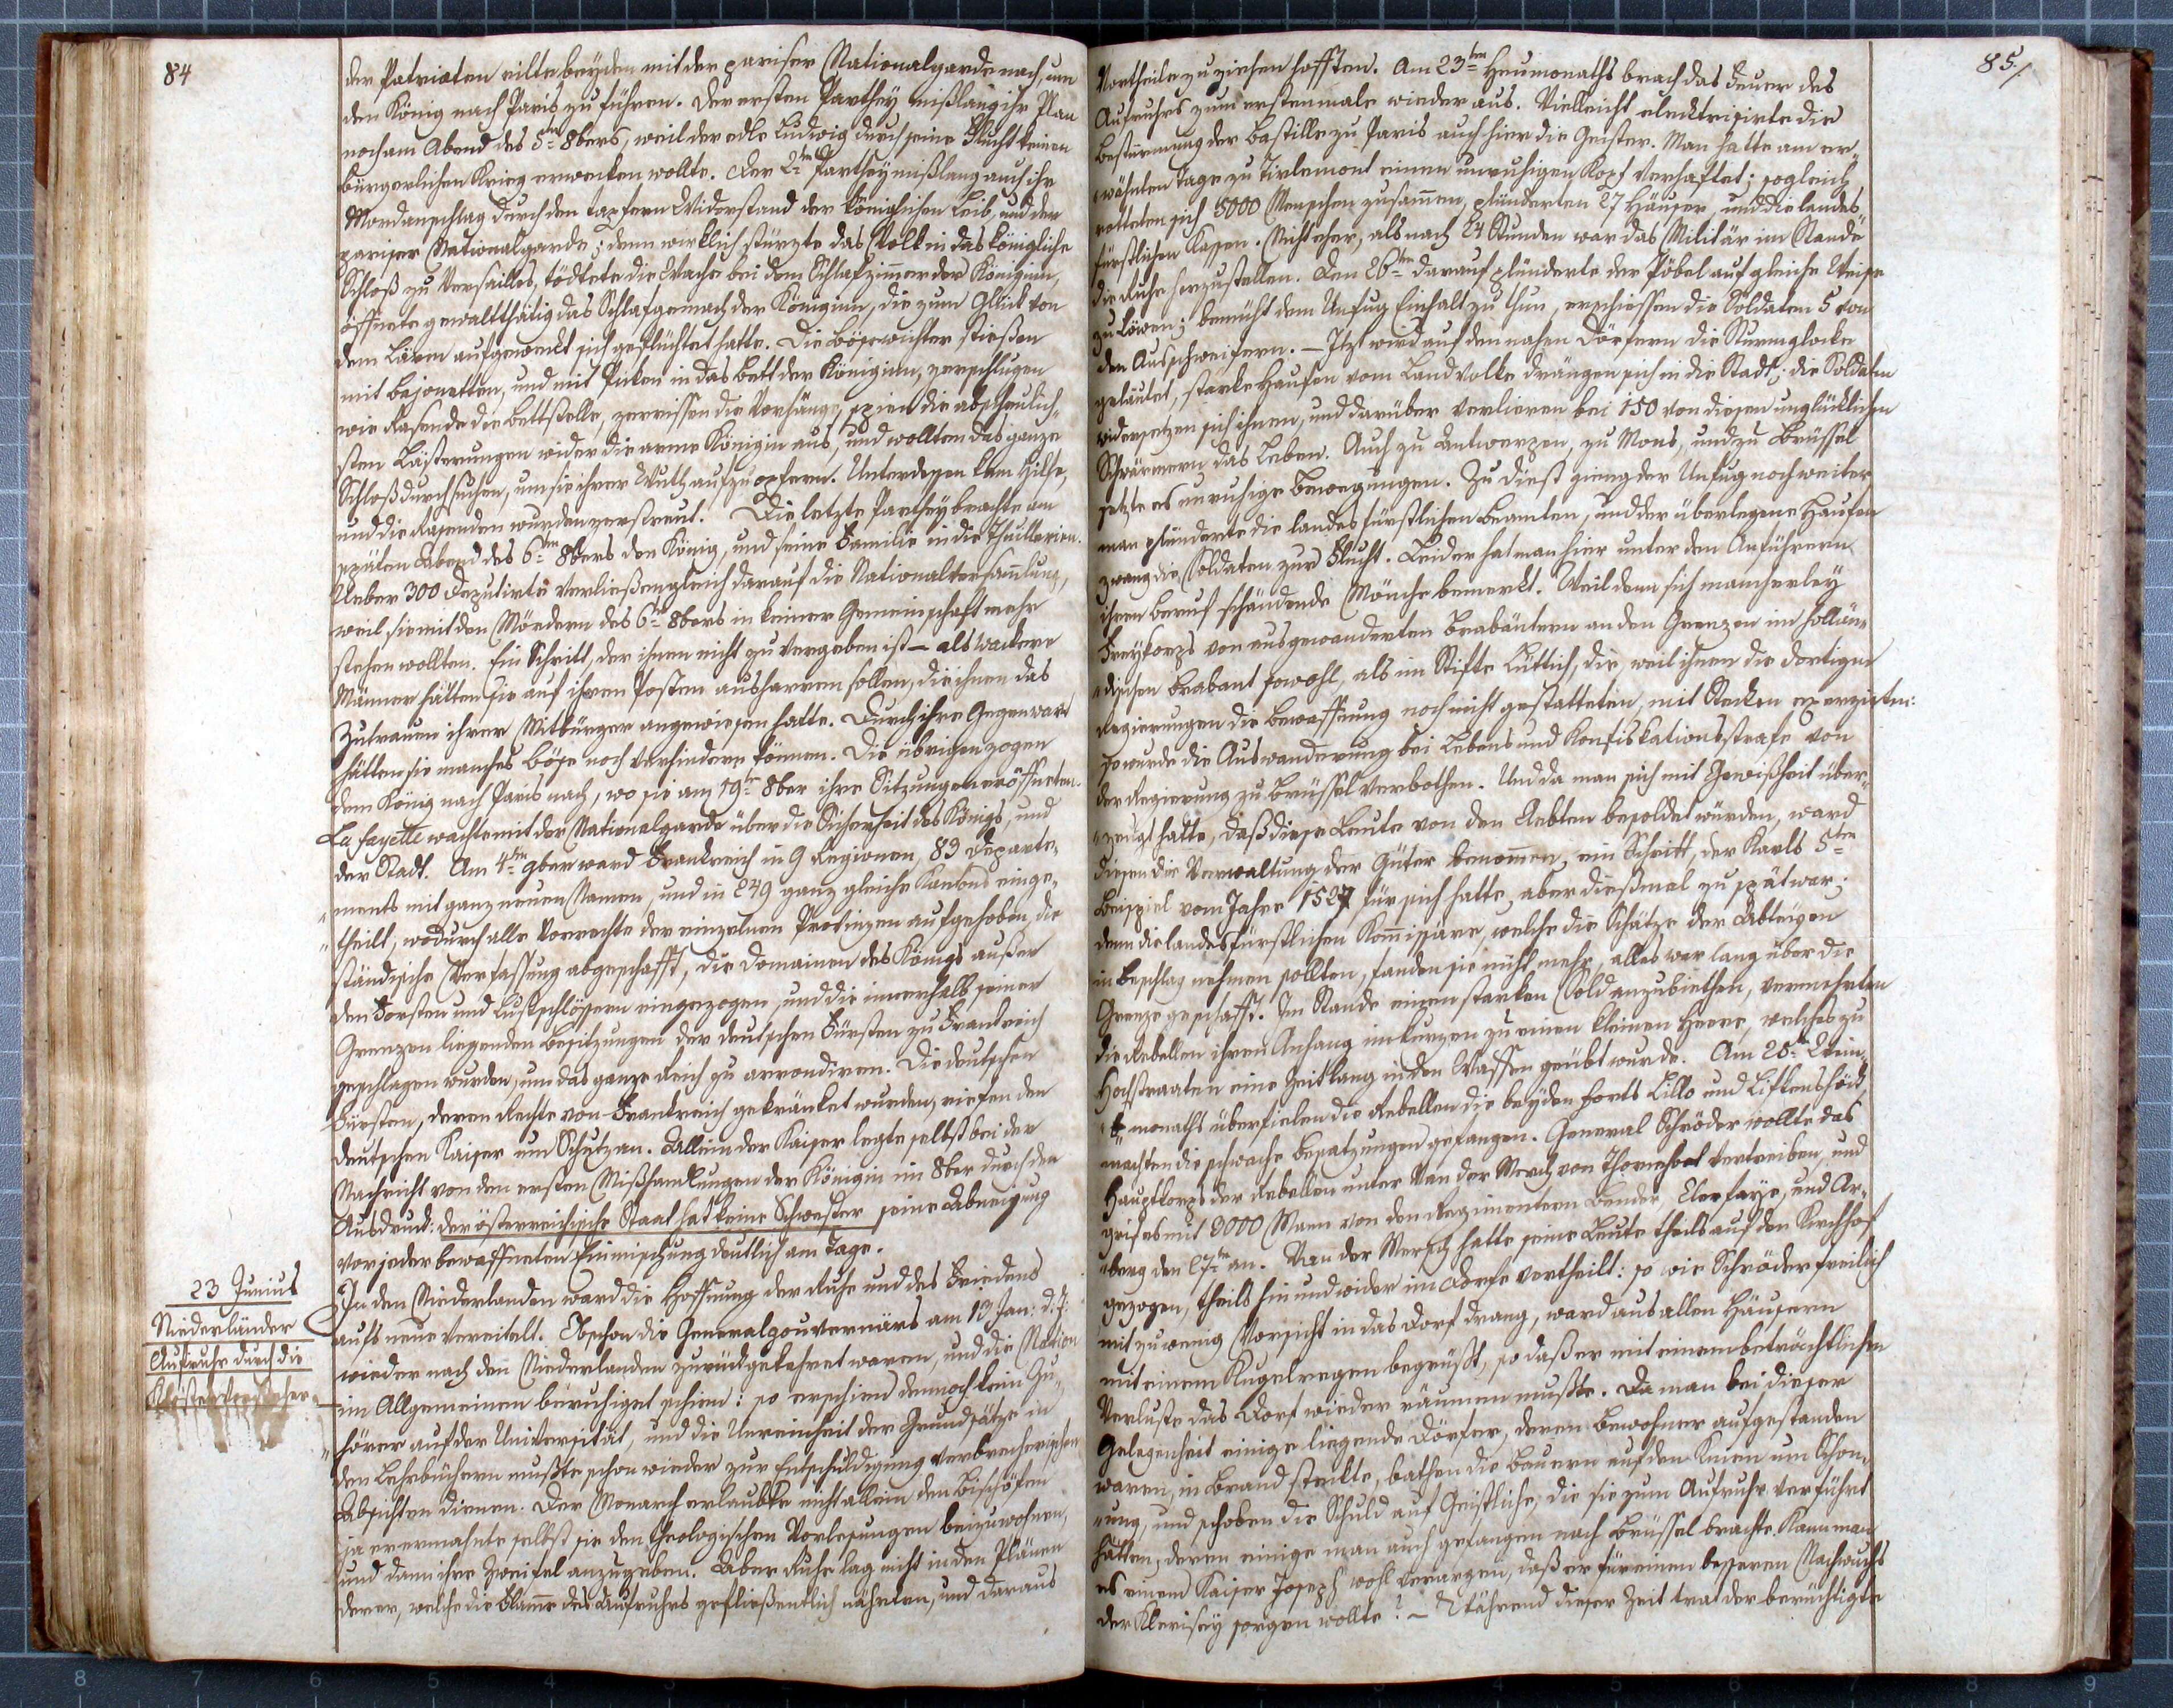 84
der Patrioten eilte beyden mit der pariser Nationalgarde nach, um
den König nach Paris zu führen. Der ersten Parthey mißlang ihr Plan
noch am Abend des 5ten 8bers, weil der edle Ludwig durch seine Flucht keinen
bürgerlichen Krieg erwecken wollte. Der 2ten Parthey mißlang auch ihr
Mordanschlag durch den tapfern Widerstand der königlichen Leib, und der
pariser Nationalgarde; denn wirklich stürzte das Volk in das königliche
Schloß zu Versailles, tödtete die Wache bei dem Schlafzimmer der Königinn,
öffnete gewaltthätig das Schlafgemach der Königinn, die zum Glück von
dem Lärm aufgeweckt sich geflüchtet hatte. Die Bösewichter stießen
mit Bajonetten, und mit Picken in das Bett der Königinn, zerschlugen
wie Rasende die Bettstelle, zerrissen die Vorhänge, spien die abscheulich-
sten Lästerungen wider die arme Königin aus, und wollten das ganze
Schloß durchsuchen, um sie ihrer Wuth aufzuopfern. Unterdessen kam Hilfe,
und die Rasenden wurden zerstreut. Die letzte Parthey brachte am
späten Abend des 6ten 8bers den König, und seine Familie in die Thuillerien.
Ueber 300 Deputirte verließen gleich darauf die Nationalversamlung,
weil sie mit den Mördern des 6ten 8bers in keiner Gemeinschaft mehr
stehen wollten. Ein Schritt, der ihnen nicht zu vergeben ist – als wackere
Männer hätten sie auf ihren Posten ausharren sollen, die ihnen das
Zutrauen ihrer Mitbürger angewiesen hatte. Durch ihre Gegenwart
hätten sie manches Böse noch verhindern können. Die übrigen zogen
dem König nach Paris nach, wo sie am 19ten 8ber ihre Sitzungen eröffneten.
La fayette wachte mit der Nationalgarde über die Sicherheit des Königs, und
der Stadt. Am 4ten 9ber ward Frankreich in 9 Regionen, 83 Departe-
"ments mit ganz neuen Namen, und in 249 ganz gleiche Kantons einge-
"theilt, wodurch alle Vorrechte der einzelnen Provinzen aufgehoben, die
ständische Verfassung abgeschafft, die Domainen des Königs außer
den Forsten und Lustschlössern eingezogen, und die innerhalb seiner
Grenzen liegenden Besitzungen der deutschen Fürsten zu Frankreich
geschlagen wurden, um das ganze Reich zu arrondiren. Die deutschen
Fürsten, deren Rechte von Frankreich gekränket wurden, riefen den
deutschen Kaiser um Schutz an. Allein der Kaiser legte selbst bei der
Nachricht von den ersten Mißhandlungen der Königin im 8ber durch den
Ausdruck: der österreichische Staat hat keine Schwester seine Abneigung
vor jeder bewaffneten Einmischung deutlich am Tage.
23 Junius
Niederländer
Aufruhr durch die
In den Niederlanden ward die Hoffnung der Ruhe und des Friedens
aufs neue vereitelt. Obschon die Generalgouvernärs am 13 Jan: d. J:
wieder nach den Niederlanden zurückgekehret waren, und die Nation
im Allgemeinen beruhiget schien: so erschien dennoch kein Zu-
"hörer auf der Universität, und die Unreinheit der Grundsätze in
den Lehrbüchern mußte schon wieder zur Entschuldigung verbrecherischen
Absichten dienen. Der Monarch erlaubte nicht allein den Bischöfen
ja er ermahnte selbst sie den theologischen Vorlesungen beizuwohnen,
und dann ihre Zweifel anzugeben. Aber Ruhe lag nicht in den Plänen
derer, welche die Flamme des Aufruhrs geflißentlich nährten, und daraus
85/
Vortheile zu ziehen hofften. Am 23ten Heumonaths brach das Feuer des
Aufruhrs zum erstenmale wieder aus. Vielleicht elecktrisirte die
Bestürmung der Bastille zu Paris auch hier die Geister. Man hatte am er-
"wähnten Tage zu Tirlemont einen unruhigen Kopf verhaftet; sogleich
rotteten sich 5000 Menschen zusammen, plünderten 27 Häuser, und die landes-
fürstlichen Kassen. Nicht eher, als nach 24 Stunden war das Militär im Stande
die Ruhe herzustellen. Den 26ten darauf plünderte der Pöbel auf gleiche Weise
zu Löwen; bemüht dem Unfug Einhalt zu thun, erschiessen die Soldaten 5 von
den Ausschweifern. – Itzt wird auf den nahen Dörfern die Sturmglocke
geläutet, starke Haufen vom Landvolke drängen sich in die Stadt; die Soldaten
widersetzen sich ihnen, und darüber verlieren bei 150 von diesen unglücklichen
Schwärmern das Leben. Auch zu Antwerpen, zu Mons, und zu Brüssel
setzte es unruhige Bewegungen. Zu Diest gieng der Unfug noch weiter
man plünderte die landesfürstlichen Beamten, und der überlegene Haufen
zwang die Soldaten zur Flucht. Leider hat man hier unter den Anführern
ihren Beruf schändende Mönche bemerkt. Weil denn sich mancherley
Freykorps von ausgewanderten Brabäntern an den Grenzen im hollän-
"dischen Brabant sowohl, als im Stifte Lüttich, die, weil ihnen die dortigen
Regierungen die Bewaffnung noch nicht gestatteten, mit Stecken exerzirten:
so wurde die Auswanderung bei Lebens und Konfiskationsstrafe von
der Regierung zu Brüssel verbothen. Und da man sich mit Gewißheit über-
"zeugt hatte, daß diese Leute von den Aebten besoldet würden, ward
diesen die Verwaltung der Güter benommen, ein Schritt, der Karls 5ten
Beispiel vom Jahre 1527 für sich hatte, aber dießmal zu spät war;
denn die landesfürstlichen Kommissäre, welche die Schätze der Abteyen
in Beschlag nehmen sollten, fanden sie nicht mehr, alles war lang über die
Grenze geschafft. Im Stande einen starken Sold anzubiethen, vermehrten
die Rebellen ihren Anhang in kurzen zu einen kleinen Heere, welches zu
Hochstraaten eine Zeitlang in den Waffen geübt wurde. Am 25ten Wein-
"monaths überfielen die Rebellen die beyden Forts Lillo und Liftenshöck,
machten die schwache Besatzungen gefangen. General Schröder wollte das
Hauptkorps der Rebellen unter Van der Mersch von Thornhout vertreiben, und
griff es mit 3000 Mann von den Regimentern Bender, Clerfaye, und Ar-
"berg den 27ten an. Van der Mersch hatte seine Leute theils auf den Kirchhof
gezogen, theils hin und wider im Dorfe vertheilt: so wie Schröder freilich
mit zu wenig Vorsicht in das Dorf drang, ward aus allen Häusern
mit einem Kugelregen begrüßt, so daß er mit einem beträchtlichen
Verluste das Dorf wieder räumen mußte. Da man bei dieser
Gelegenheit einige liegende Dörfer, deren Bewohner aufgestanden
waren, in Brand steckte, bathen die Bauern auf den Knien um Schon-
"ung, und schoben die Schuld auf Geistliche, die sie zum Aufruhr verführt
hätten, deren einige man auch gefangen nach Brüssel brachte. Kann man
es einem Kaiser Joseph wohl verargen, daß er für einen besseren Nachwuchs
der Klerisey sorgen wollte? – Während dieser Zeit trat der berüchtigte